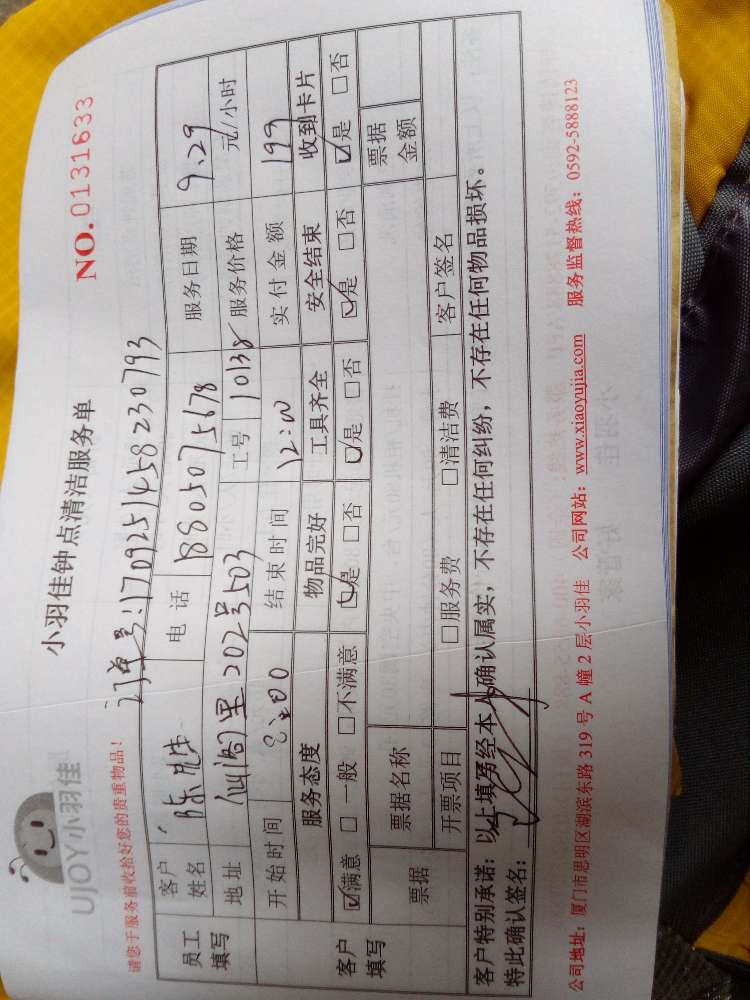 UJOY小羽佳
小羽佳钟点清洁服务单
NO.0131633
请您于服务前收拾好您的贵重物品!
订单号:1709251458230793
员工填写 客户姓名 陈先生 电话 18805075678 服务日期 9.29
地址 202号503 工号 10138 服务价格 元/小时
开始时间 8:00 结束时间 12:00 实付金额 199
客户填写 服务态度 物品完好 工具齐全 安全结束 收到卡片
☑满意 □一般 □不满意 ☑是 □否 ☑是 □否 ☑是 □否 ☑是 □否
票据 票据名称 票据金额
开票项目 □服务费 □清洁费 客户签名
客户特别承诺:以上填写经本人确认属实,不存在任何纠纷,不存在任何物品损坏。
特此确认签名:
公司地址:厦门市思明区湖滨东路319号A幢2层小羽佳 公司网站:www.xiaoyujia.com 服务监督热线:0592-5888123